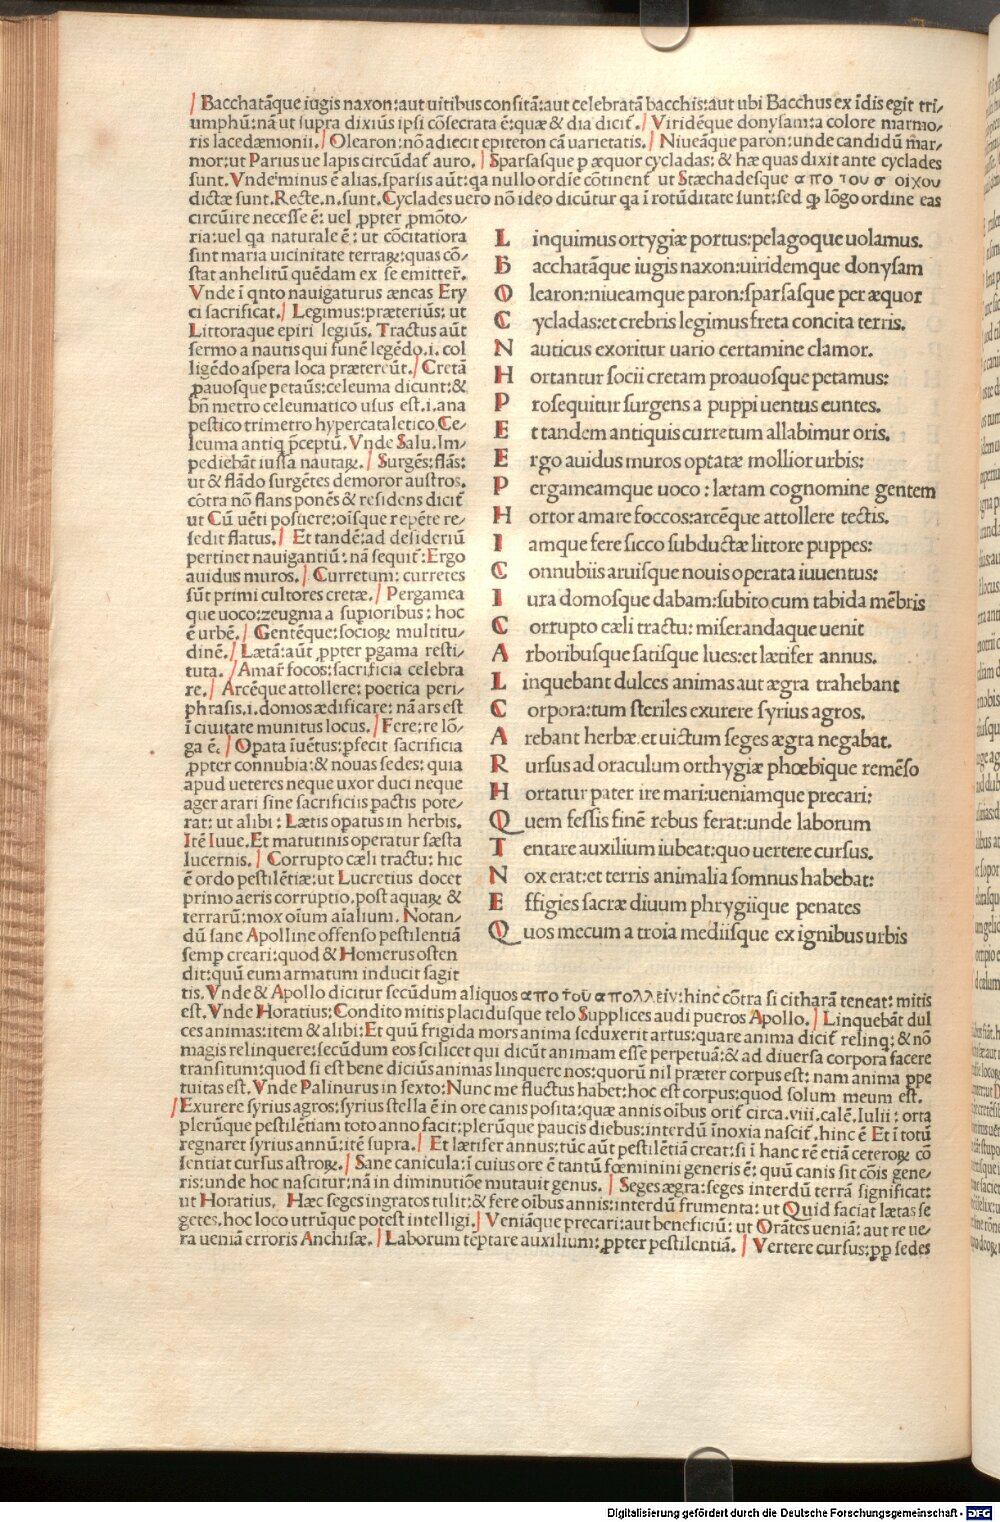 Bacchatāque iugis naxon:aut uitibus consitā:aut celebratā bacchis:aut ubi Bacchus ex īdis egit tri⸗
umphū:nā ut supra dixiūs ipsi cōsecrata ē:quæ & dia dicit̄. Viridēque donysam:a colore marmo⸗
ris lacedæmonii. Olearon:nō adiecit epiteton cā uarietatis. Niueāque paron:unde candidū mar⸗
mor:ut Parius ue lapis circūdat̄ auro. Sparsasque p æquor cycladas: & hæ quas dixit ante cyclades
sunt. Vnde minus ē alias. sparsis aūt:qa nullo ordīe cōtinent̄ ut Stæchadesque απο του σ οιχου
dictæ sunt. Recte.n.sunt. Cyclades uero nō ideo dicūtur qa ī rotūditate sunt:sed ꝙ lōgo ordine eas
circūire necesse ē: uel ꝓpter ꝓmōto⸗
ria:uel qa naturale ē: ut cōcitatiora
sint maria uicinitate terraꝝ:quas cō⸗
stat anhelitū quēdam ex se emitter̄.
Vnde ī qnto nauigaturus æneas Ery
ci sacrificat. Legimus:præteriūs: ut
Littoraque epiri legiūs. Tractus aūt
sermo a nautis qui funē legēdo.i.col
ligēdo aspera loca prætereūt. Cretā
ꝓauosque petaūs:celeuma dicunt:&
bn̄ metro celeumatico usus est.i.ana
pestico trimetro hypercataletico. Ce⸗
leuma antiq p̄ceptū. Vnde Salu. Im⸗
pediebāt iussa nautaꝝ. Surgēs:flās:
ut & flādo surgētes demoror austros.
cōtra nō flans ponēs & residens dicit̄
ut Cū uēti posuere:oīsque repēte re⸗
sedit flatus. Et tandē:ad desideriū
pertinet nauigantiū:nā sequit̄: Ergo
auidus muros. Curretum: curretes
sūt primi cultores cretæ. Pergamea
que uoco:zeugnia a supioribus: hoc
ē urbē. Gentēque:socioꝝ multitu⸗
dinē. Lætā:aūt ꝓpter pgama resti⸗
tuta. Amar̄ focos:sacrificia celebra
re. Arcēque attollere: poetica peri⸗
phrasis.i.domos ædificare: nā ars est
ī ciuitate munitus locus. Fere:re lō⸗
ga ē. Opata iuētus:pfecit sacrificia
ꝓpter connubia:& nouas sedes: quia
apud ueteres neque uxor duci neque
ager arari sine sacrificiis pactis pote⸗
rat: ut alibi: Lætis opatus in herbis.
Itē Iuue. Et matutinis operatur fæsta
lucernis. Corrupto cæli tractu: hic
ē ordo pestilētiæ:ut Lucretius docet
primo aeris corruptio.post aquaꝝ &
terrarū:mox oīum aīalium. Notan⸗
dū sane Apolline offenso pestilentiā
semp creari:quod & Homerus osten
dit:quū eum armatum inducit sagit
L inquimus ortygiæ portus:pelagoque uolamus.
B acchatāque iugis naxon:uiridemque donysam
O learon:niueamque paron:sparsasque per æquor
C ycladas:et crebris legimus freta concita terris.
N auticus exoritur uario certamine clamor.
H ortantur socii cretam proauosque petamus:
P rosequitur surgens a puppi uentus euntes.
E t tandem antiquis curretum allabimur oris.
E rgo auidus muros optatæ mollior urbis:
P ergameamque uoco: lætam cognomine gentem
H ortor amare foccos:arcēque attollere tectis.
I amque fere sicco subductæ littore puppes:
C onnubiis aruisque nouis operata iuuentus:
I ura domosque dabam:subito cum tabida mēbris
C orrupto cæli tractu: miserandaque uenit
A rboribusque satisque lues:et lætifer annus.
L inquebant dulces animas aut ægra trahebant
C orpora:tum steriles exurere syrius agros.
A rebant herbæ.et uictum seges ægra negabat.
R ursus ad oraculum orthygiæ phœbique remēso
H ortatur pater ire mari:ueniamque precari:
Q uem fessis finē rebus ferat:unde laborum
T entare auxilium iubeat:quo uertere cursus.
N ox erat:et terris animalia somnus habebat:
E ffigies sacræ diuum phrygiique penates
Q uos mecum a troia mediisque ex ignibus urbis
tis. Vnde & Apollo dicitur secūdum aliquos απο του απολλειν:hinc cōtra si citharā teneat: mitis
est. Vnde Horatius: Condito mitis placidusque telo Supplices audi pueros Apollo. Linquebāt dul
ces animas:item & alibi: Et quū frigida mors anima seduxerit artus:quare anima dicit̄ relinq: & nō
magis relinquere:secūdum eos scilicet qui dicūt animam esse perpetuā:& ad diuersa corpora facere
transitum:quod si est bene diciūs animas linquere nos:quorū nil præter corpus est: nam anima ppe
tuitas est. Vnde Palinurus in sexto: Nunc me fluctus habet:hoc est corpus:quod solum meum est.
Exurere syrius agros:syrius stella ē in ore canis posita:quæ annis oībus orit̄ circa.viii.calē.Iulii: orta
plerūque pestilētiam toto anno facit:plerūque paucis diebus:interdū īnoxia nascit̄. hinc ē Et ī totū
regnaret syrius annū:itē supra. Et lætifer annus:tūc aūt pestilētiā creat:si ī hanc rē etiā ceteroꝝ cō
sentiat cursus astroꝝ. Sane canicula:ī cuius ore ē tantū fœminini generis ē: quū canis sit cōis gene⸗
ris:unde hoc nascitur:nā in diminutiōe mutauit genus. Seges ægra:seges interdū terrā significat:
ut Horatius. Hæc seges ingratos tulit:& fere oībus annis:interdū frumenta: ut Quid faciat lætas se
getes.hoc loco utrūque potest intelligi. Veniāque precari:aut beneficiū: ut Orātes ueniā: aut re ue⸗
ra ueniā erroris Anchisæ. Laborum tēptare auxilium:ꝓpter pestilentiā. Vertere cursus:ꝓp sedes
Digitalisierung gefördert durch die Deutsche Forschungsgemeinschaft - DFG